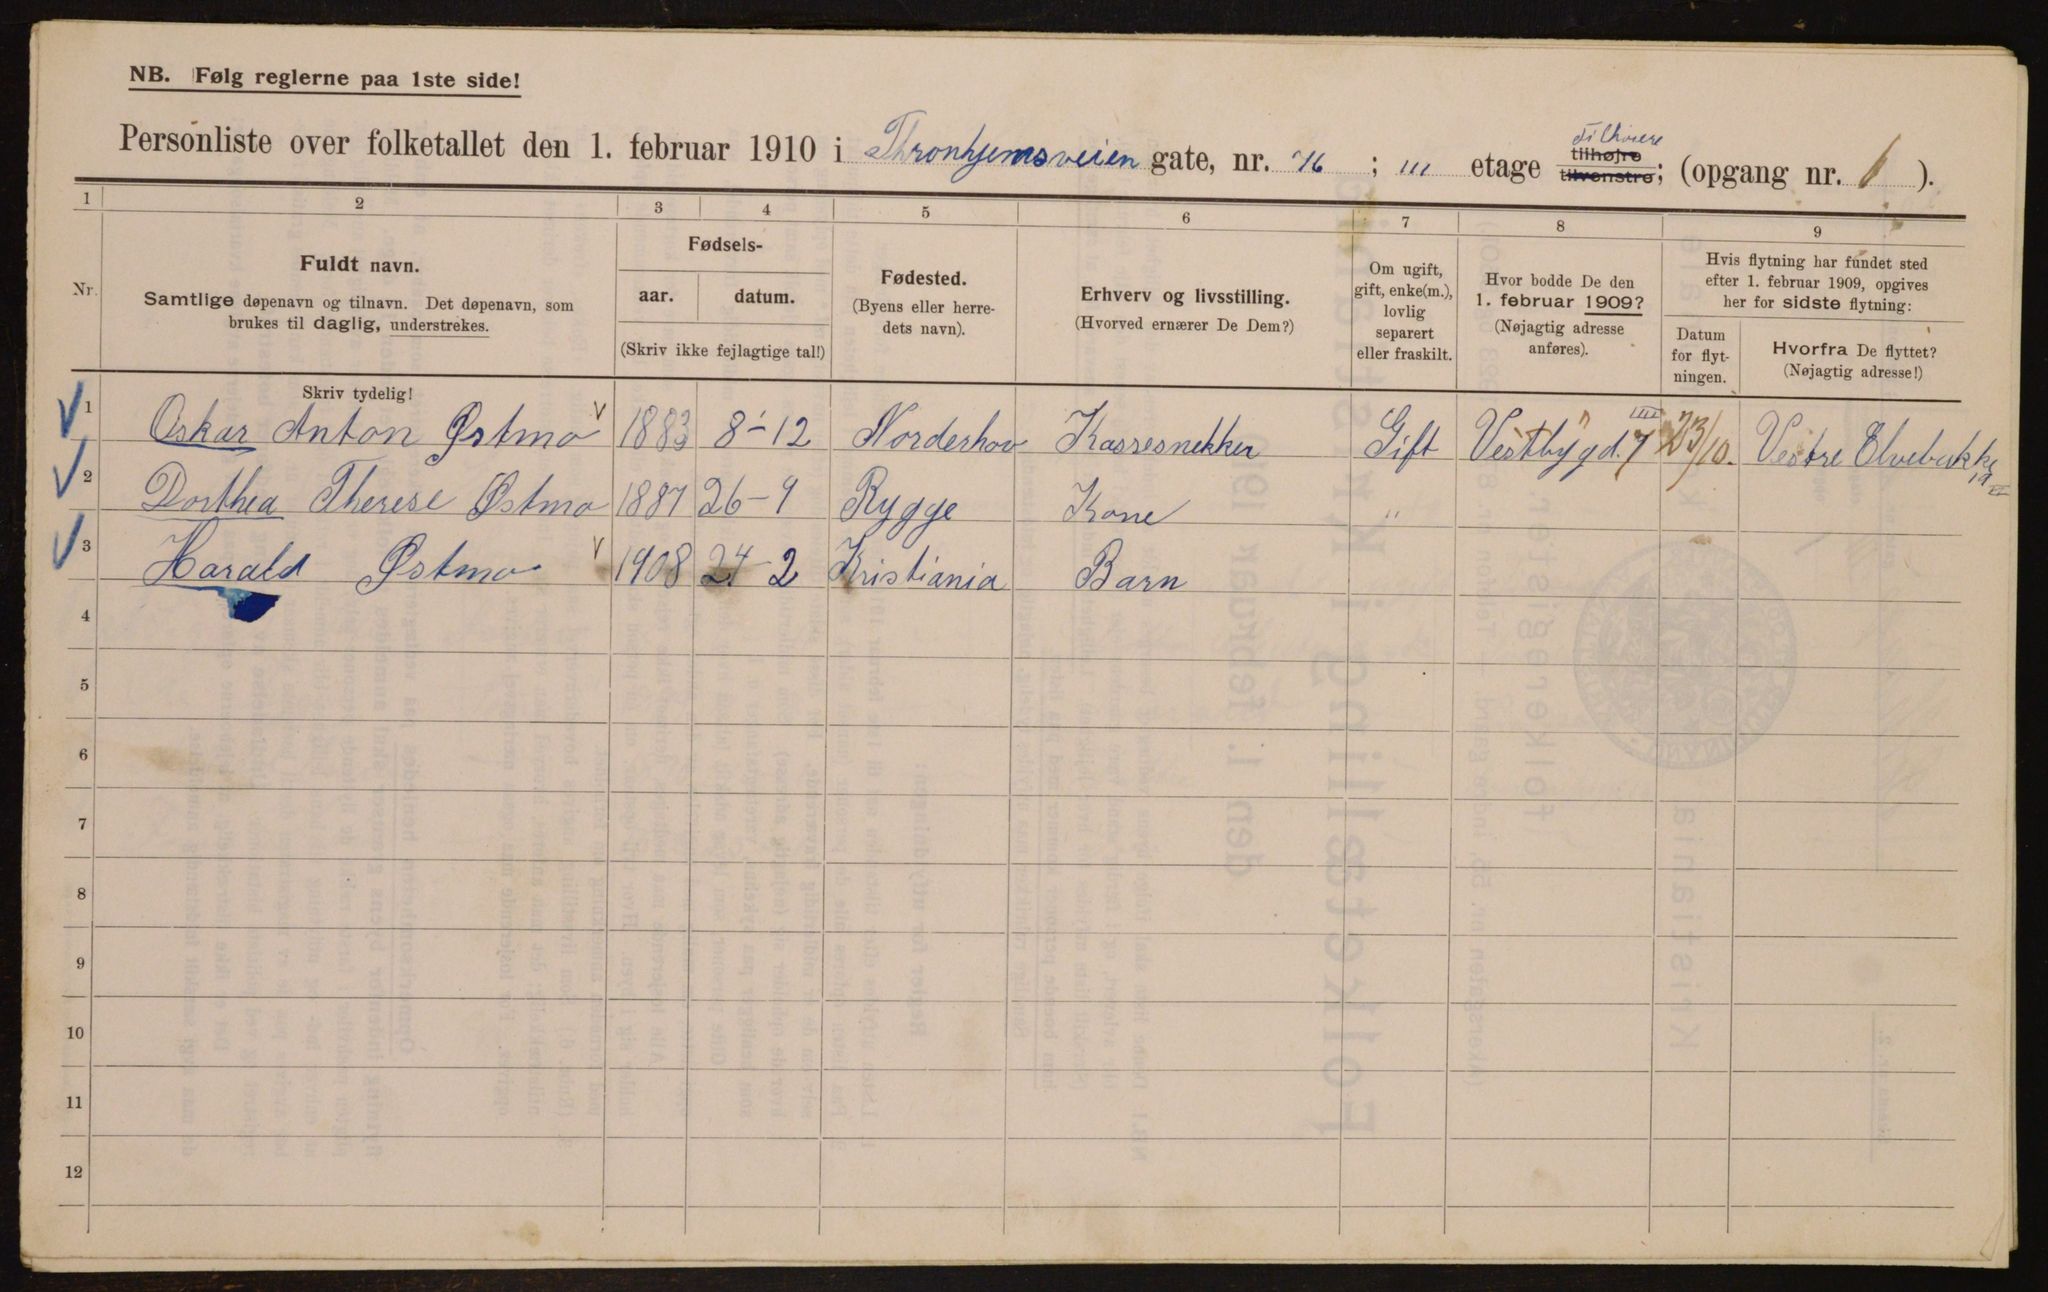 NB. Følg reglerne paa 1ste side!
Tilhoire
Personliste over folketallet den 1. februar 1910 i Thronhjemsveien gate, nr. 76 ; III etage tilhøjre tilvenstre; (opgang nr. 1 ).
1 2 3 4 5 6 7 8 9
Nr.
Fuldt navn.
Samtlige døpenavn og tilnavn. Det døpenavn, som
brukes til daglig, understrekes.
Fødsels-
aar. datum.
(Skriv ikke fejlagtige tal!)
Fødested.
(Byens eller herre-
dets navn).
Erhverv og livsstilling.
(Hvorved ernærer De Dem?)
Om ugift,
gift, enke(m.),
lovlig
separert
eller fraskilt.
Hvor bodde De den
1. februar 1909?
(Nøjagtig adresse
anføres).
Hvis flytning har fundet sted
efter 1. februar 1909, opgives
her for sidste flytning:
Datum
for flyt-
ningen.
Hvorfra De flyttet?
(Nøjagtig adresse!)
Skriv tydelig!
1 Oskar Anton Østmo 1883 8-12 Norderhov Kassesnekker Gift Vestbygd. 7 III 23/10. Vestre Elvebakke
2 Dorthea Therese Østmo 1887 26-9 Rygge Kone "
3 Harald Østmo 1908 24-2 Kristiania Barn
4
5
6
7
8
9
10
11
12